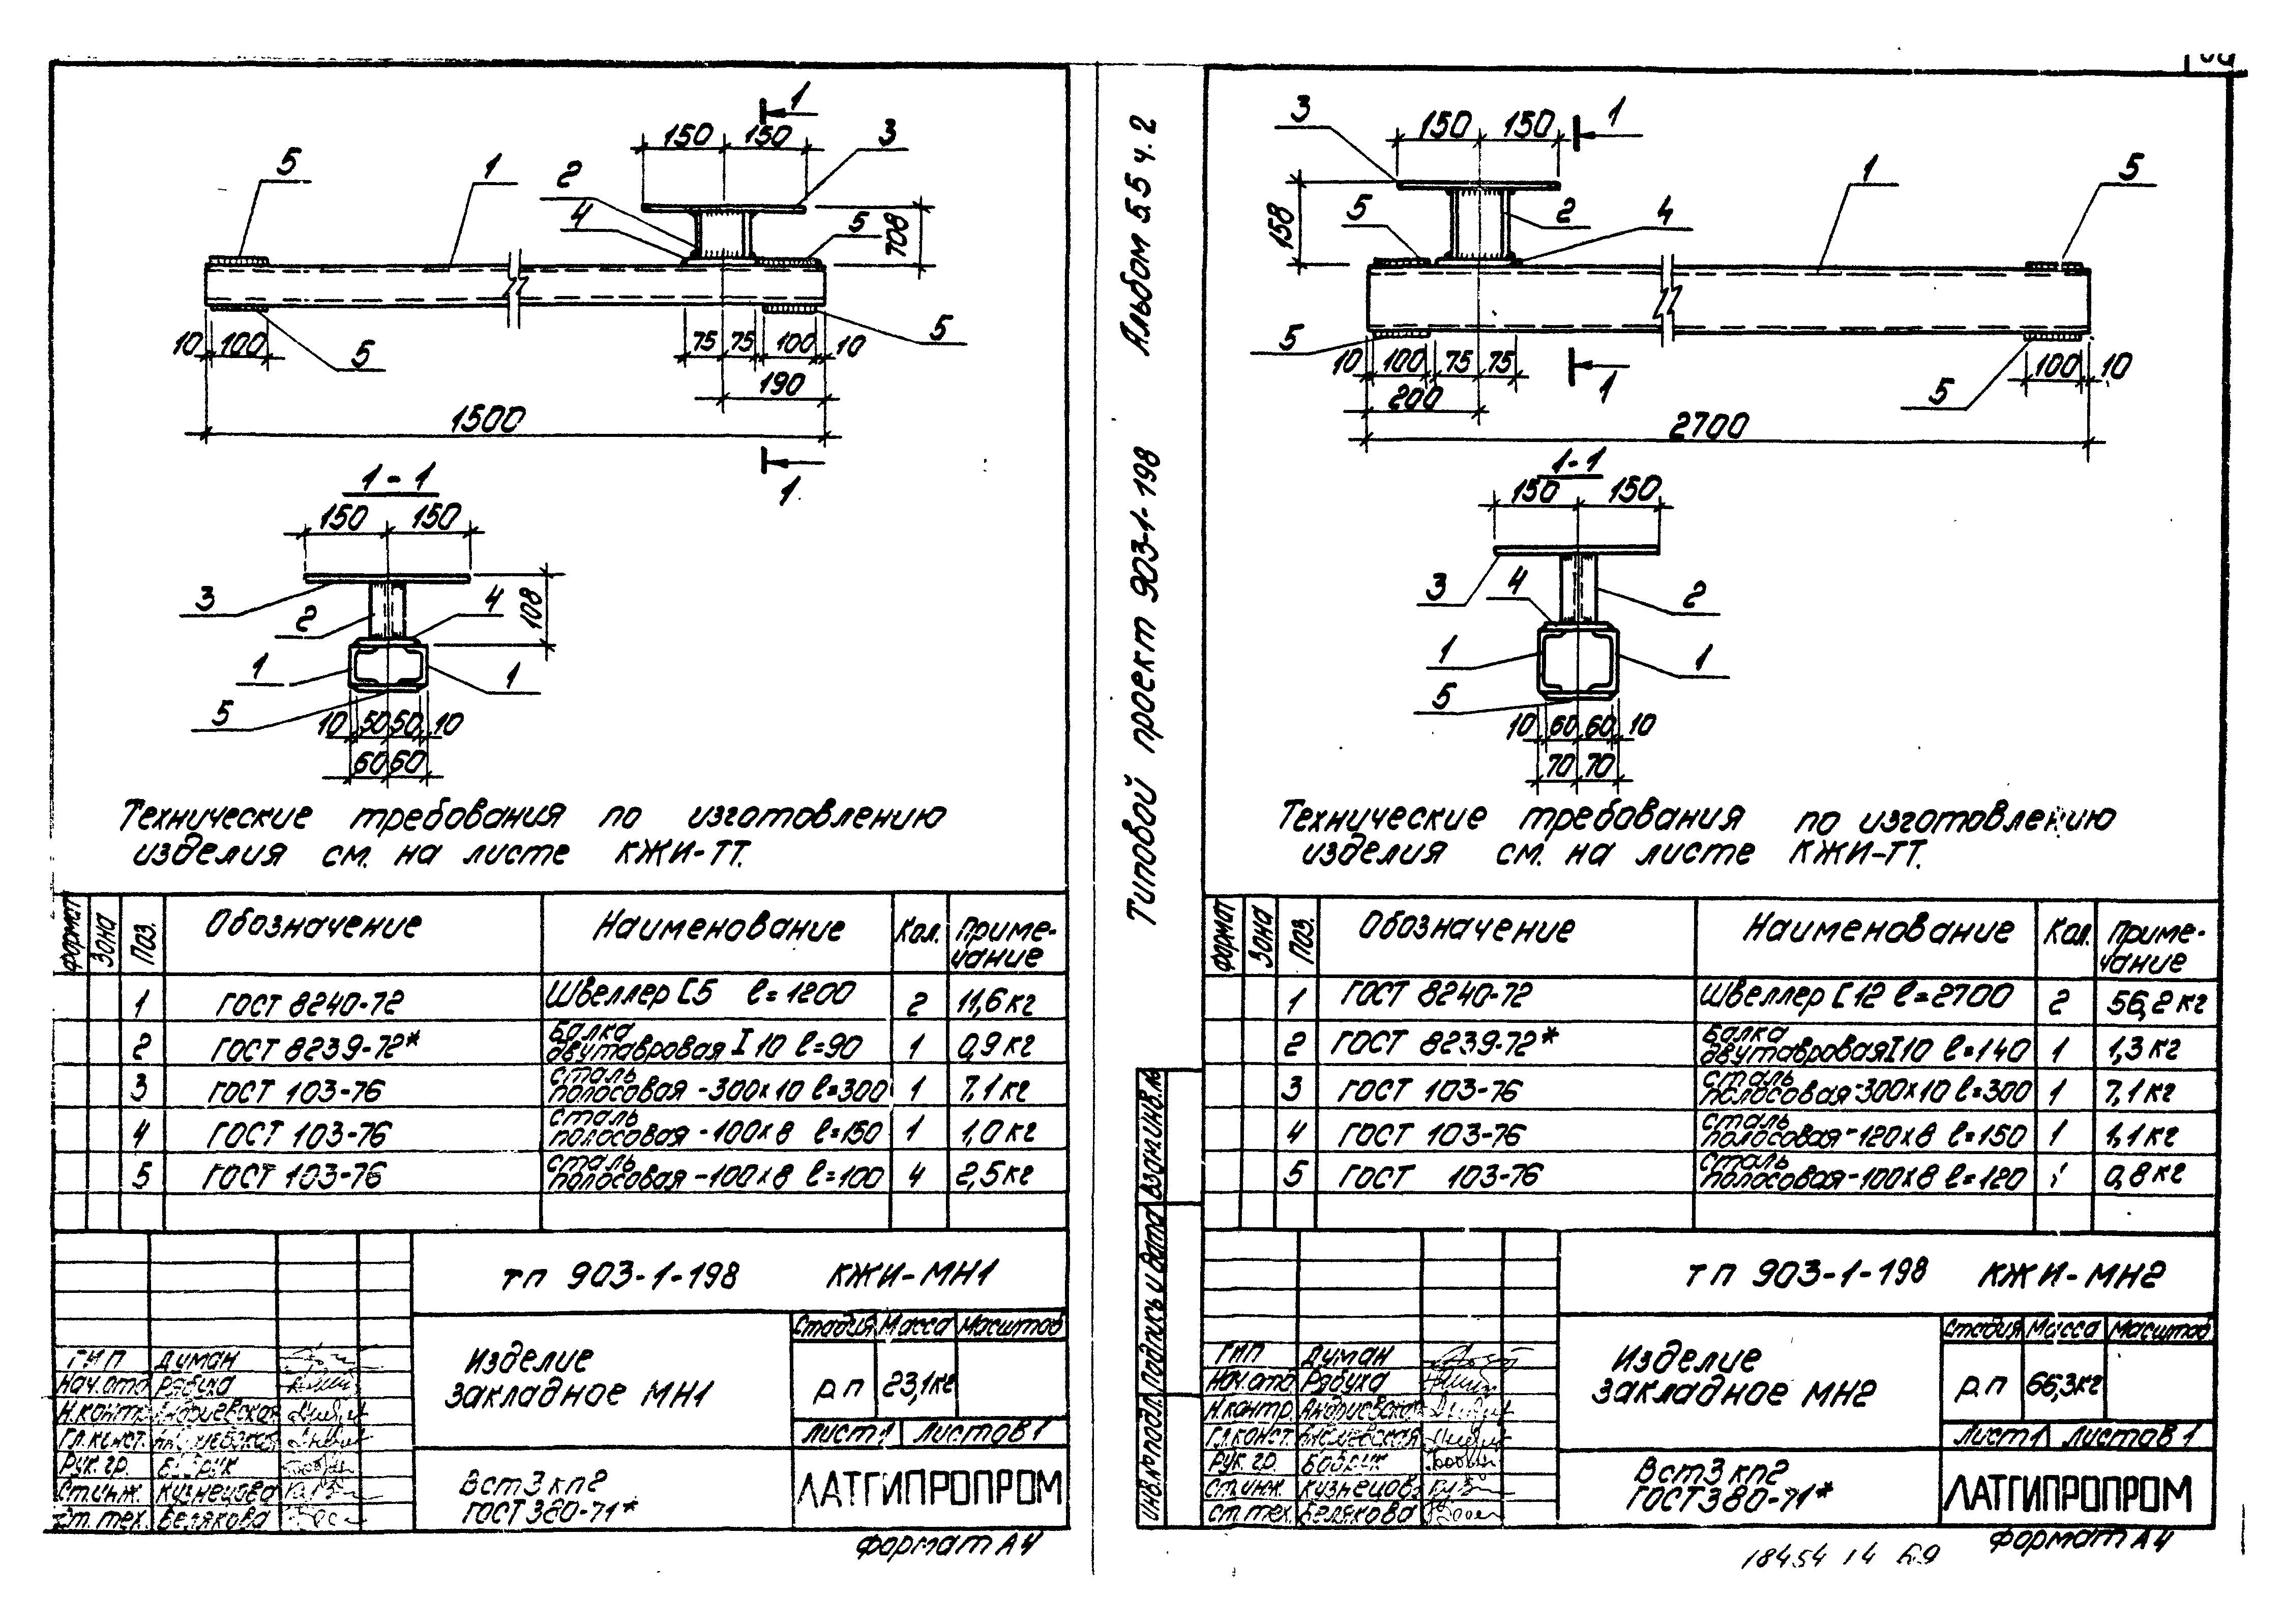 1
150 150
3
5
1
2
4
5
108
10 100
5
75 75 100 10
5
190
1500
1
1-1
150 150
3
2
4
108
1
1
5
10 50 50 10
60 60
Технические требования по изготовлению
изделия см. на листе КЖИ-ТТ.
Формат
Зона
Поз.
Обозначение
Наименование
Кол.
Приме-
чание
1 ГОСТ 8240-72 Швеллер [5 ℓ=1200 2 11,6 кг
Балка
2 ГОСТ 8239-72* двутавровая I 10 ℓ=90 1 0,9 кг
сталь
3 ГОСТ 103-76 полосовая -300х10 ℓ=300 1 7,1 кг
сталь
4 ГОСТ 103-76 полосовая -100х8 ℓ=150 1 1,0 кг
сталь
5 ГОСТ 103-76 полосовая -100х8 ℓ=100 4 2,5 кг
ТП 903-1-198 КЖИ-МН1
Изделие
закладное МН1
Стадия Масса Масштаб
р.п 23,1кг
Лист 1 Листов 1
ГИП Думан
Нач.отд Рябуха
Н.контр. Андриевская
Гл.конст. Андриевская
Рук. гр. Бобрик
Ст.инж. Кузнецова
Ст. тех. Белякова
Вст3кп2
ГОСТ 380-71*
ЛАТГИПРОПРОМ
Формат А4
Альбом 5.5 ч. 2
Типовой проект 903-1-198
Взам.инв.№
Подпись и дата
Инв.№подл.
3
150 150
1
1
5
158
5
2
4
5
10 100 75 75
1
100 10
5
200
2700
1-1
150 150
3
4
2
1
1
5
10 60 60 10
70 70
Технические требования по изготовлению
изделия см. на листе КЖИ-ТТ.
Формат
Зона
Поз.
Обозначение
Наименование
Кол.
Приме-
чание
1 ГОСТ 8240-72 Швеллер [12 ℓ=2700 2 56,2 кг
Балка
2 ГОСТ 8239-72* двутавровая I10 ℓ=140 1 1,3 кг
сталь
3 ГОСТ 103-76 полосовая -300х10 ℓ=300 1 7,1 кг
сталь
4 ГОСТ 103-76 полосовая -120х8 ℓ=150 1 1,1 кг
сталь
5 ГОСТ 103-76 полосовая -100х8 ℓ=120 0,8 кг
ТП 903-1-198 КЖИ-МН2
Изделие
закладное МН2
Стадия Масса Масштаб
р.п 66,3кг
Лист 1 Листов 1
ГИП Думан
Нач.отд Рябуха
Н.контр. Андриевская
Гл.конст. Андриевская
Рук. гр. Бобрик
Ст.инж. Кузнецова
Ст.тех. Белякова
Вст3кп2
ГОСТ380-71*
ЛАТГИПРОПРОМ
Формат А4
18454 14